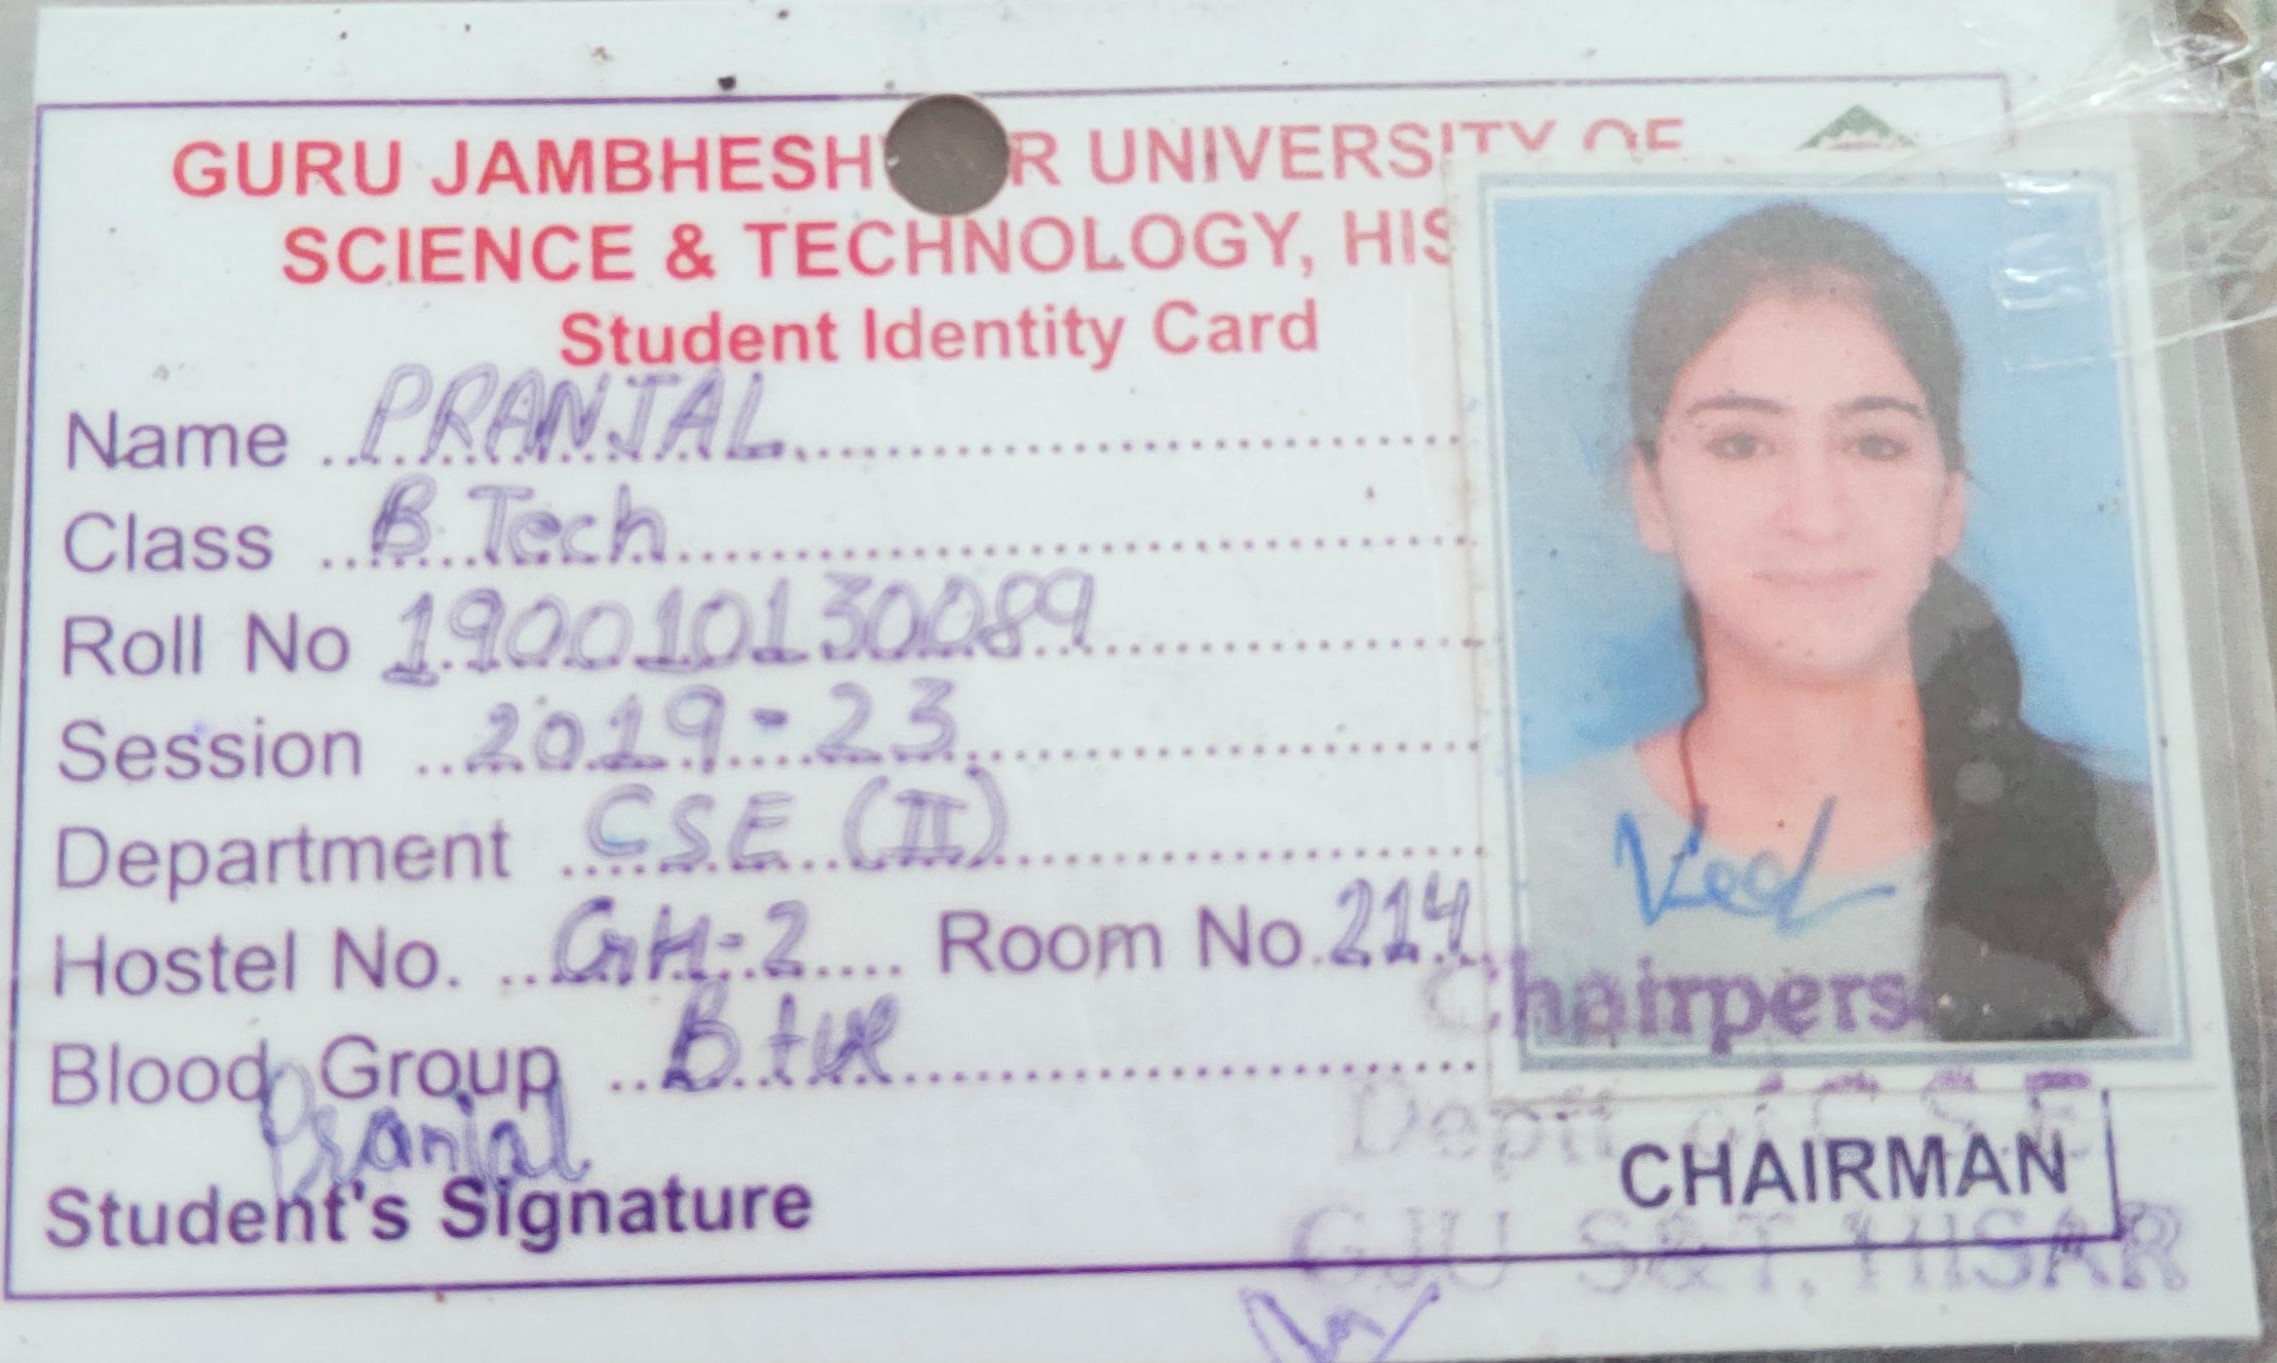 GURU JAMBHESH R UNIVERSITY OF
SCIENCE & TECHNOLOGY, HIS
Student Identity Card
Name PRANJAL
Class B.Tech
Roll No 190010130089
Session 2019-23
Department CSE (II)
Hostel No. GH-2 Room No. 214
Blood Group B+ve
Pranjal
Student's Signature
Ved
Chairpers
Deptt of C.S.E
CHAIRMAN
GJU S&T, HISAR